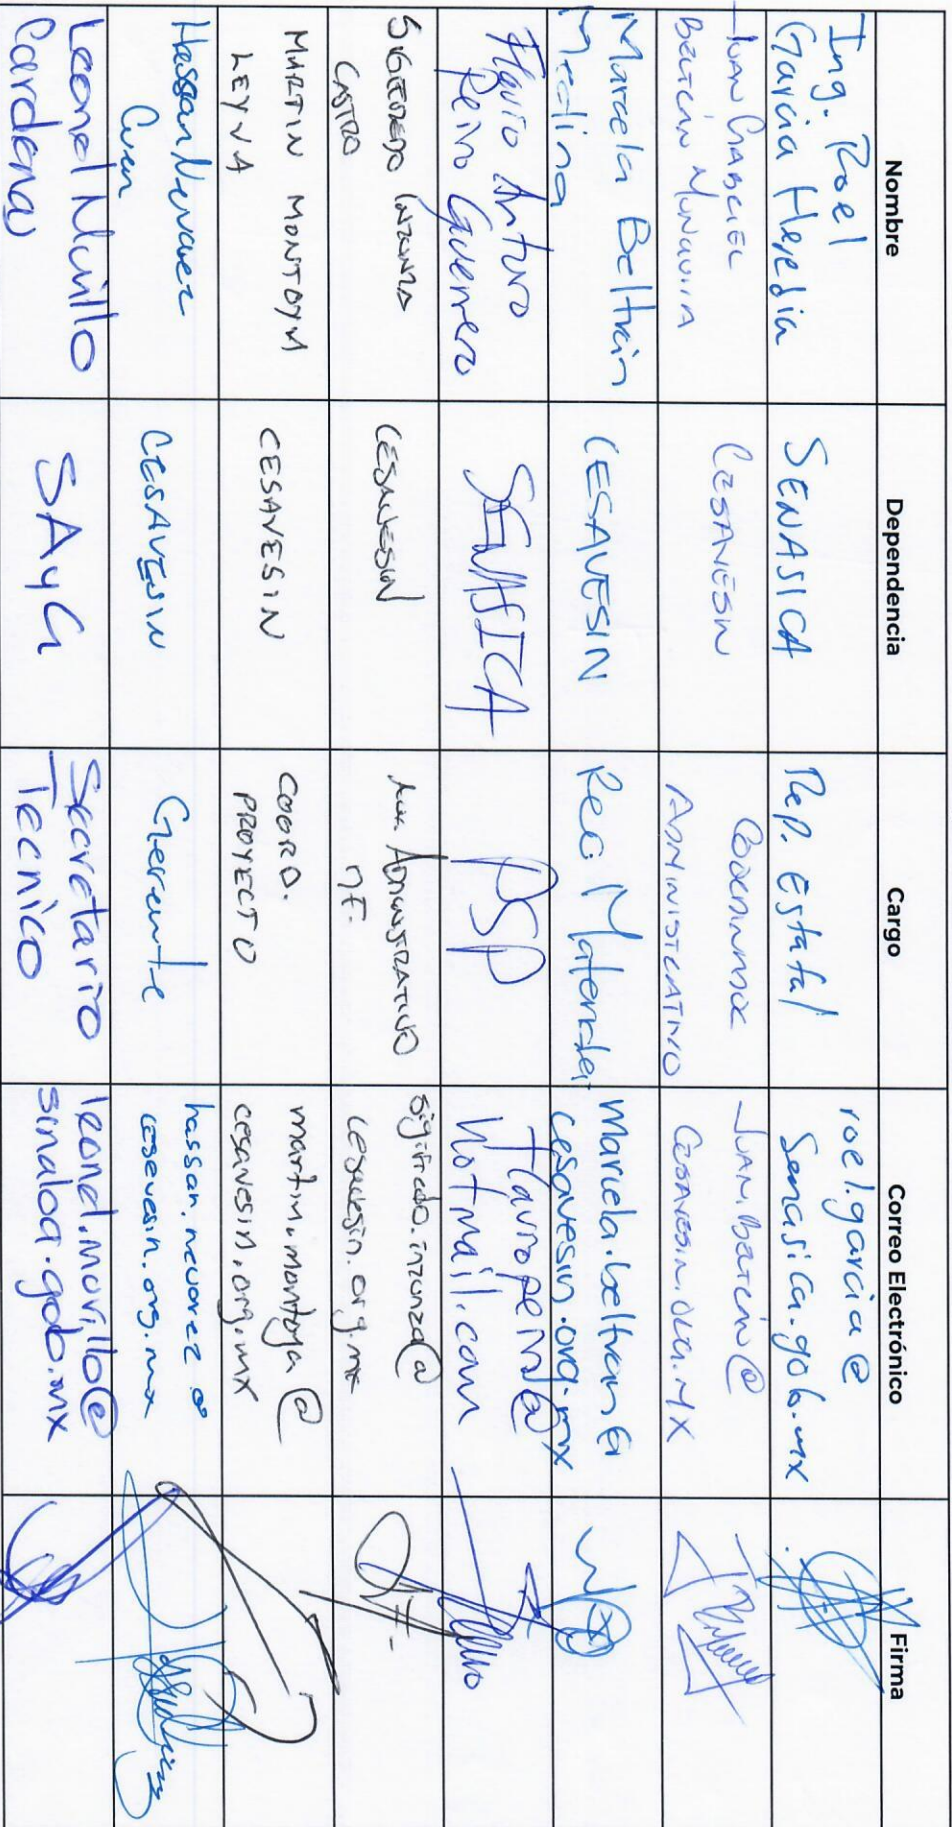 Nombre Dependencia Cargo Correo Electrónico Firma
Ing. Roel
Garcia Heredia
SENASICA
Rep. Estatal
roel.garcia@
senasica.gob.mx
JUAN GABRIEL
BELTRÁN
CESAVESIN
COORDINADOR
ADMINISTRATIVO
JUAN.BELTRÁN@
CESAVESIN.ORG.MX
Marcela Beltrán
Medina
CESAVESIN
Rec. Materiales
marcela.beltran@
cesavesin.org.mx
Flavio Arturo
Peiro Guerrero
SENASICA
PSP
flaviopeiro@
hotmail.com
SIGIFREDO INZUNZA
CASTRO
CESAVESIN
Aux. ADMINISTRATIVO
sigifredo.inzunza@
cesavesin.org.mx
MARTIN MONTOYA
LEYVA
CESAVESIN
COORD.
PROYECTO
martin.montoya@
cesavesin.org.mx
Hassan Nevarez
CESAVESIN
Gerente
hassan.nevarez@
cesavesin.org.mx
Leonel Murillo
Cardenas
SAyG
Secretario
Tecnico
leonel.murillo@
sinaloa.gob.mx